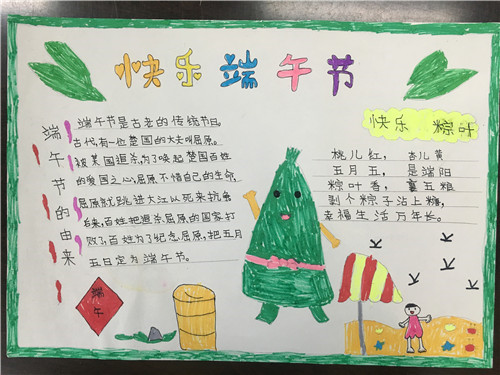 快乐端午节
端午节的由来
端午节是古老的传统节日。
古代,有一位楚国的大夫叫屈原。
被某国追杀,为了唤起楚国百姓
的爱国之心,屈原不惜自己的生命,
屈原就跳进大江以死来抗会
后来,百姓把追杀屈原的国家打
败了,百姓为了纪念屈原,把五月
五日定为端午节。
端午
快乐 粽叶
桃儿红, 杏儿黄
五月五, 是端阳
粽叶香, 裹五粮
剥个粽子沾上糖,
幸福生活万年长。